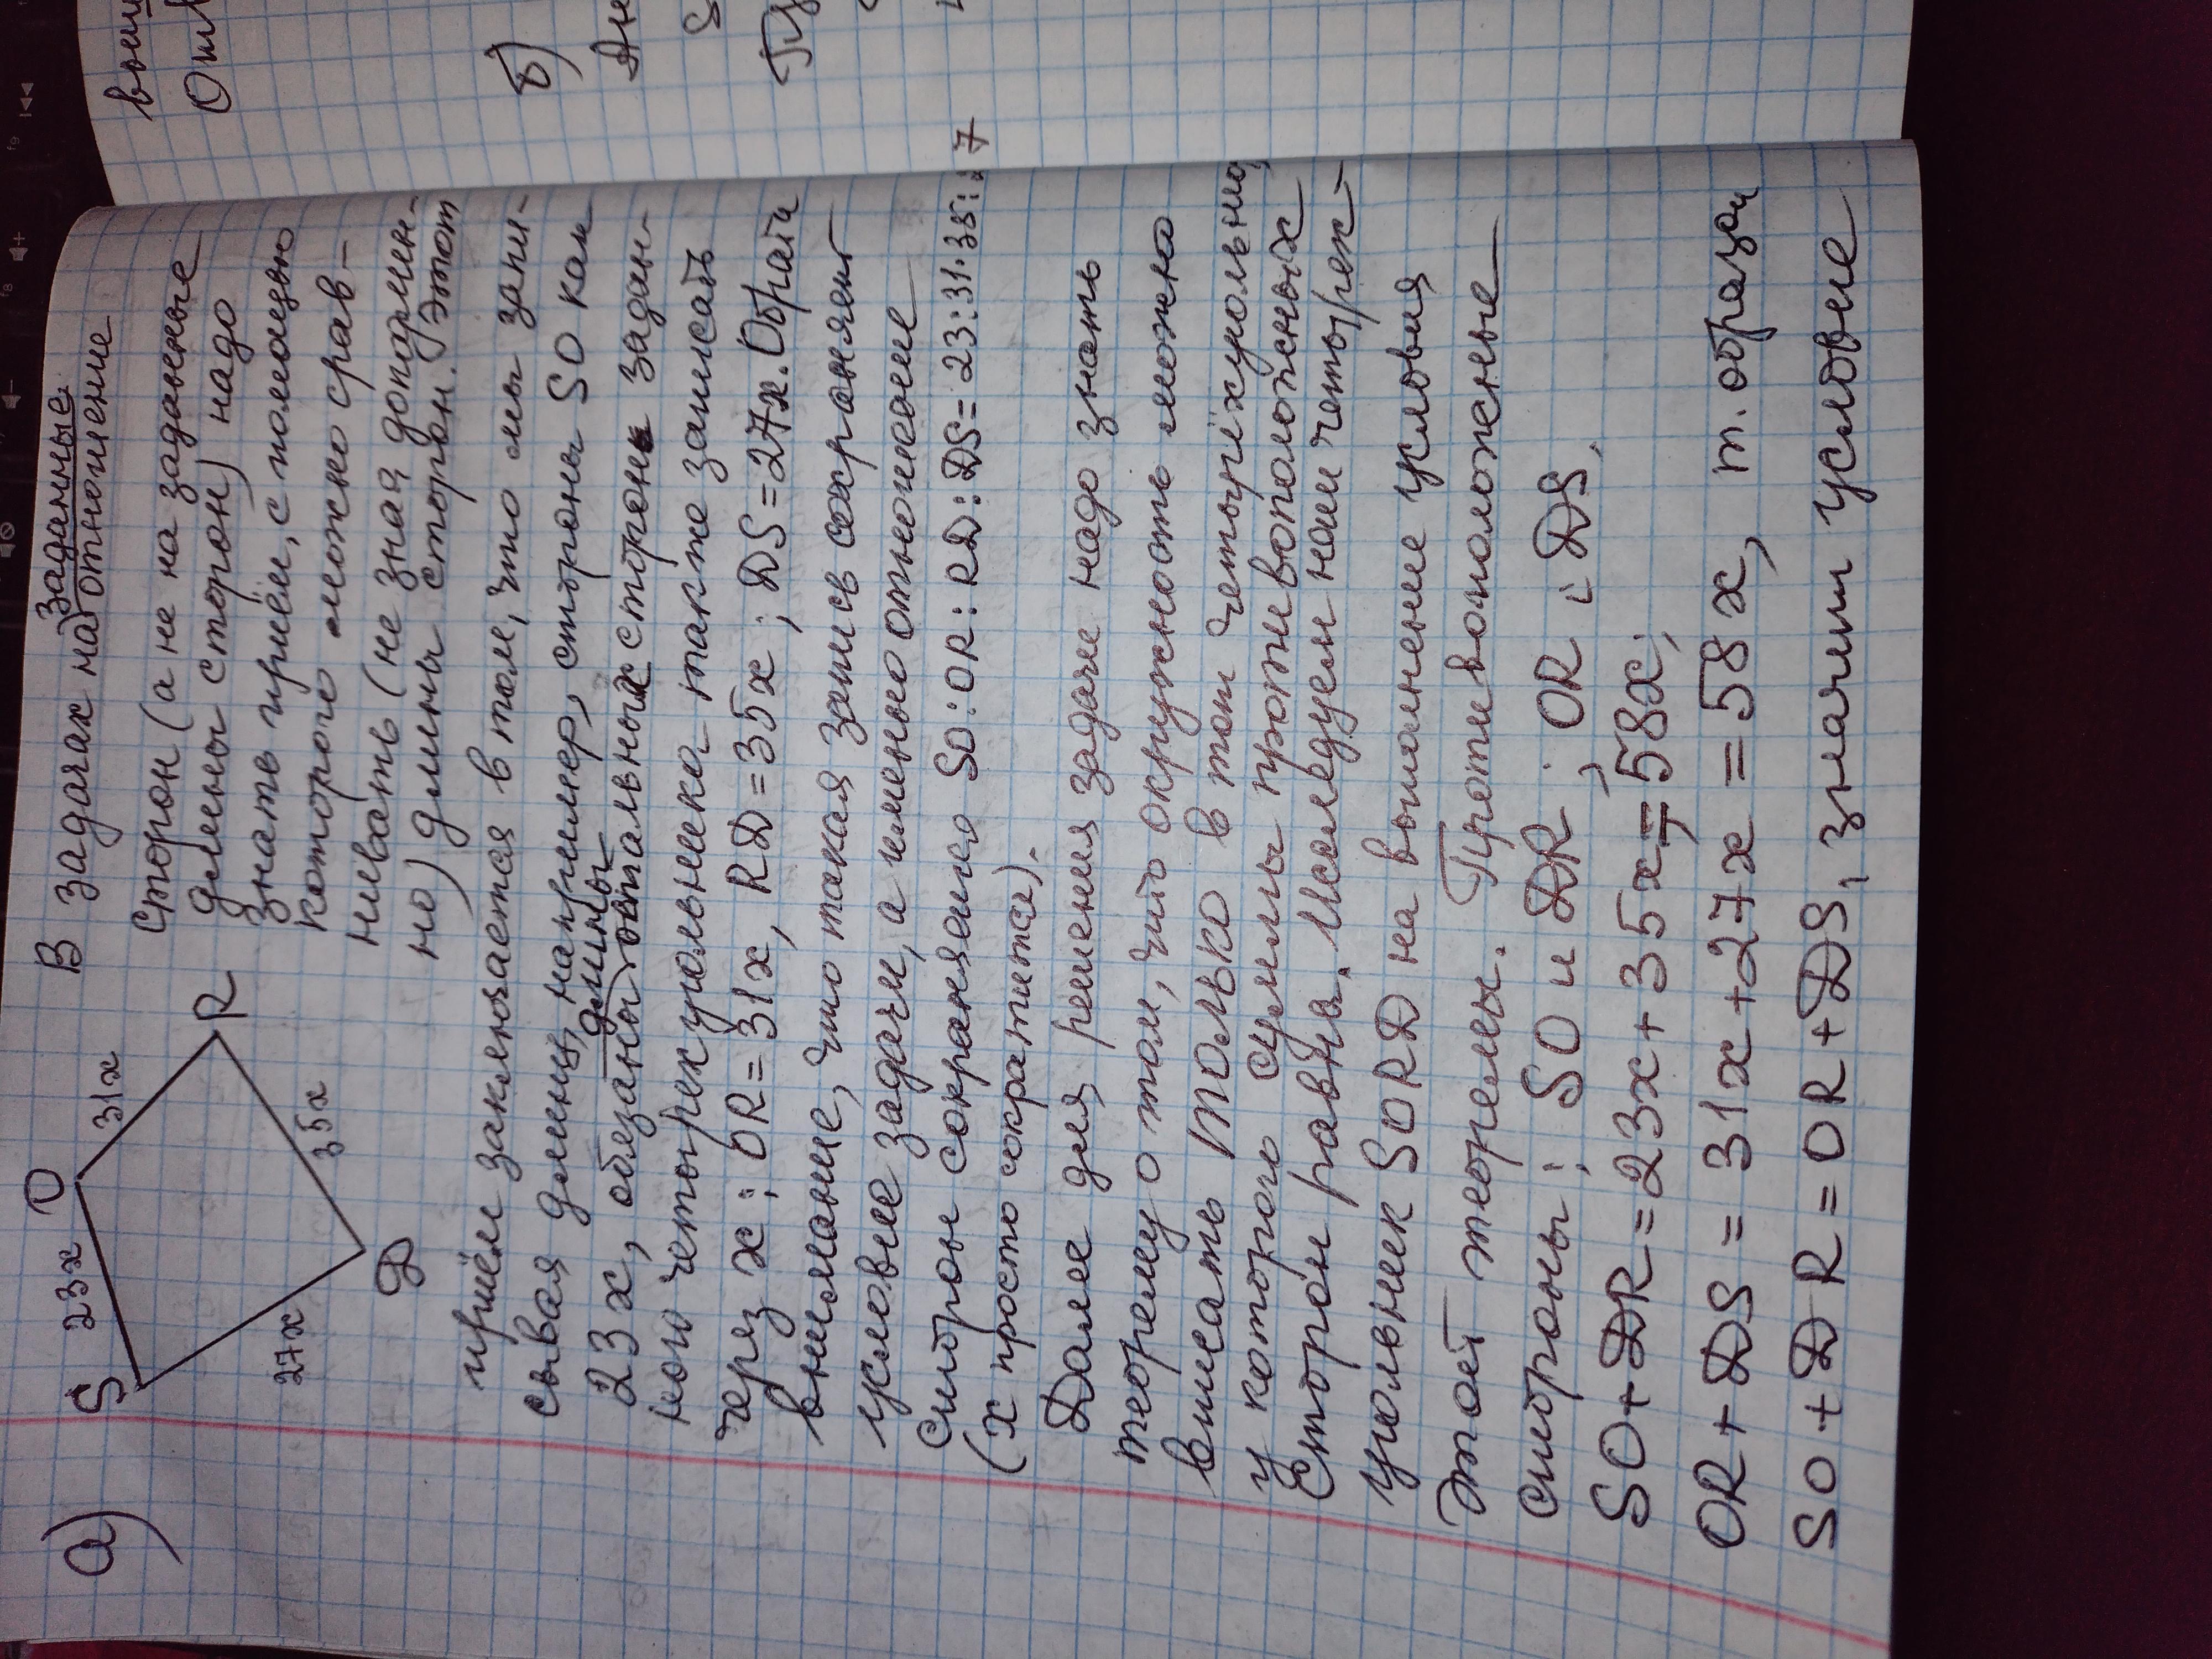 а)
S 23x O 31x R
35x
27x
D
В задачах на заданные
отношение
сторон (а не на заданные
длины сторон) надо
знать приём, с помощью
которого можно срав-
нивать (не зная доподлин-
но) длины сторон. Этот
приём заключается в том, что мы запи-
сывая длину, например, стороны SO как
23x, обязаны длины остальных сторон задан-
ного четырехугольника также записать
через x: OR = 31x, RD = 35x; DS = 27x. Обрати
внимание, что такая запись сохраняет
условие задачи, а именно отношение
сторон сохранено SO:OR:RD:DS = 23:31:35:27
(x просто сократится).
Далее для решения задачи надо знать
теорему о том, что окружность можно
вписать только в тот четырёхугольник,
у которого суммы противоположных
сторон равны. Исследуем наш четырёх-
угольник SORD на выполнение условия
этой теоремы. Противоположные
стороны: SO и DR; OR и DS.
SO + DR = 23x + 35x = 58x;
OR + DS = 31x + 27x = 58x, т. образом
SO + DR = OR + DS, значит условие
выш
Отв
б)
Дн
S